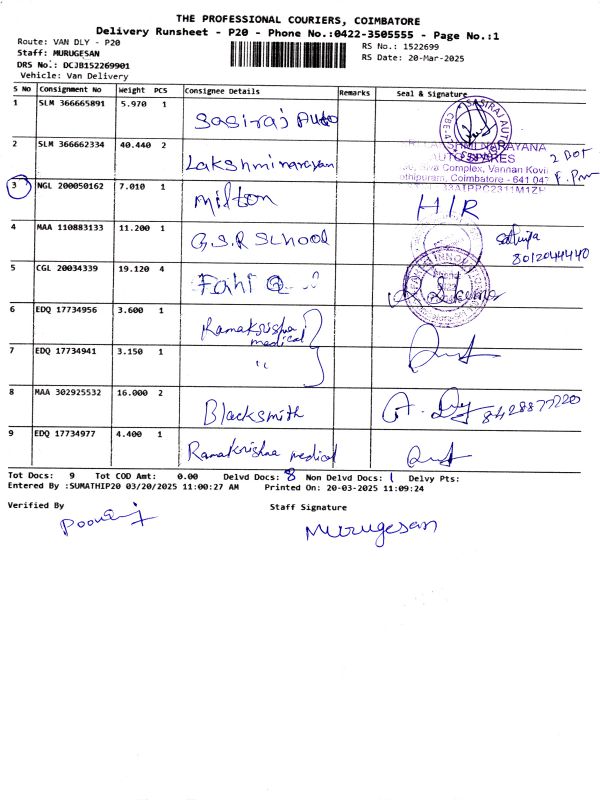 THE PROFESSIONAL COURIERS, COIMBATORE
Delivery Runsheet - P20 - Phone No.:0422-3505555 - Page No.:1
Route: VAN DLY - P20
RS No.: 1522699
Staff: MURUGESAN
RS Date: 20-Mar-2025
DRS No.: DCJB152269901
Vehicle: Van Delivery
S No Consignment No Weight PCS Consignee Details Remarks Seal & Signature
1 SLM 366665891 5.970 1 Sasiraj Auto
SASIRAJ AUTO
2 SLM 366662334 40.440 2 Lakshminarayan
LAKSHMI NARAYANA
AUTO SPARES
Siva Complex, Vannan Kovil
Coimbatore - 641 047
2 Box
3 NGL 200050162 7.010 1 Milton H/R
4 MAA 110883133 11.200 1 G.S.R School
8012044440
5 CGL 20034339 19.120 4
6 EDQ 17734956 3.600 1 Ramakrishna medical
7 EDQ 17734941 3.150 1 "
8 MAA 302925532 16.000 2 Blacksmith
8428877220
9 EDQ 17734977 4.400 1 Ramakrishna medical
Tot Docs: 9 Tot COD Amt: 0.00 Delvd Docs: 8 Non Delvd Docs: 1 Delvy Pts:
Entered By :SUMATHIP20 03/20/2025 11:00:27 AM Printed On: 20-03-2025 11:09:24
Verified By Staff Signature
Murugesan